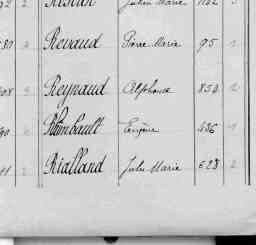 2 Julien Marie
Revaud Pierre Marie 95 1
Reynaud Alphonse 854 2
Rhimbault Eugène 436 1
Rialland Jules Marie 628 2